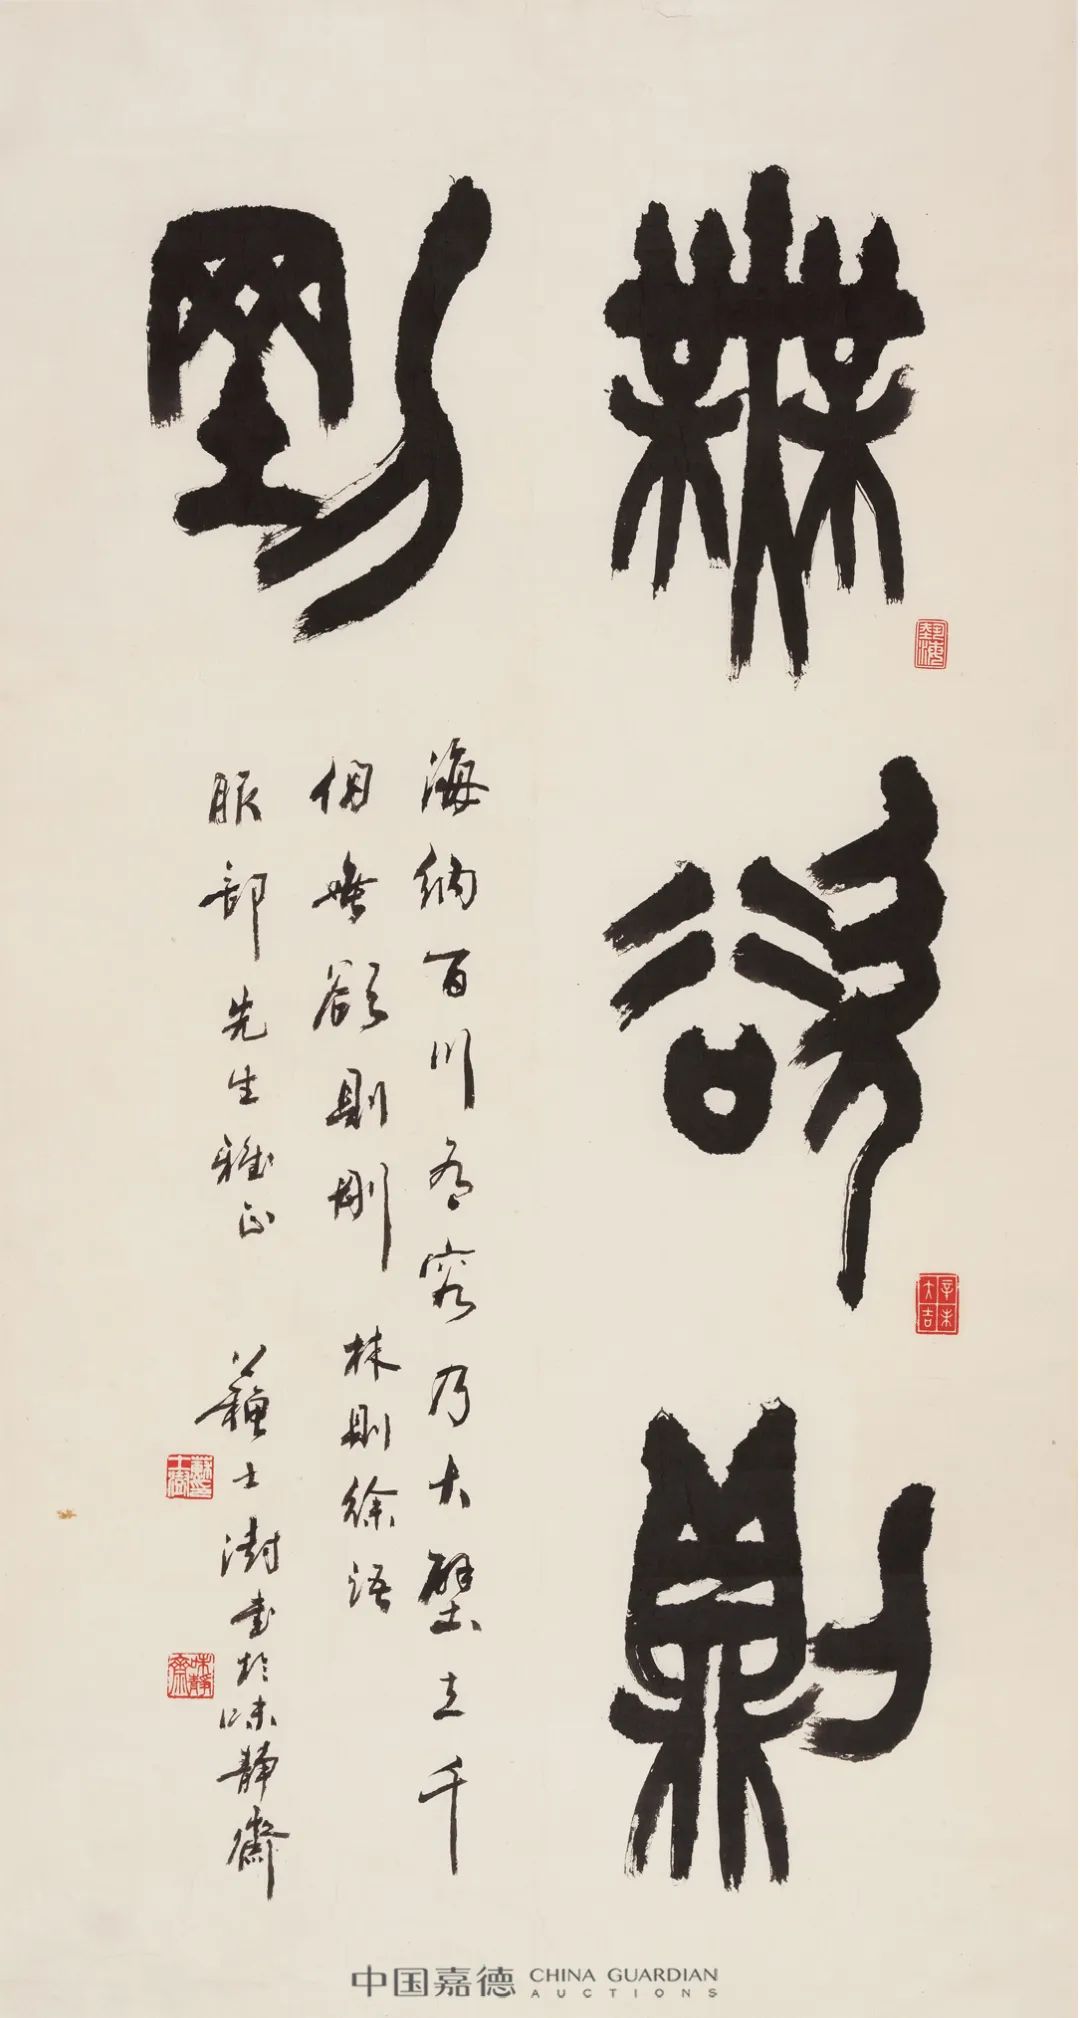 無欲則
剛
海納百川有容乃大壁立千
仞無欲則剛 林則徐語
服部先生雅正 蘇士澍書於味靜齋
辛未大吉
蘇士澍
味靜齋
中国嘉德 CHINA GUARDIAN
AUCTIONS